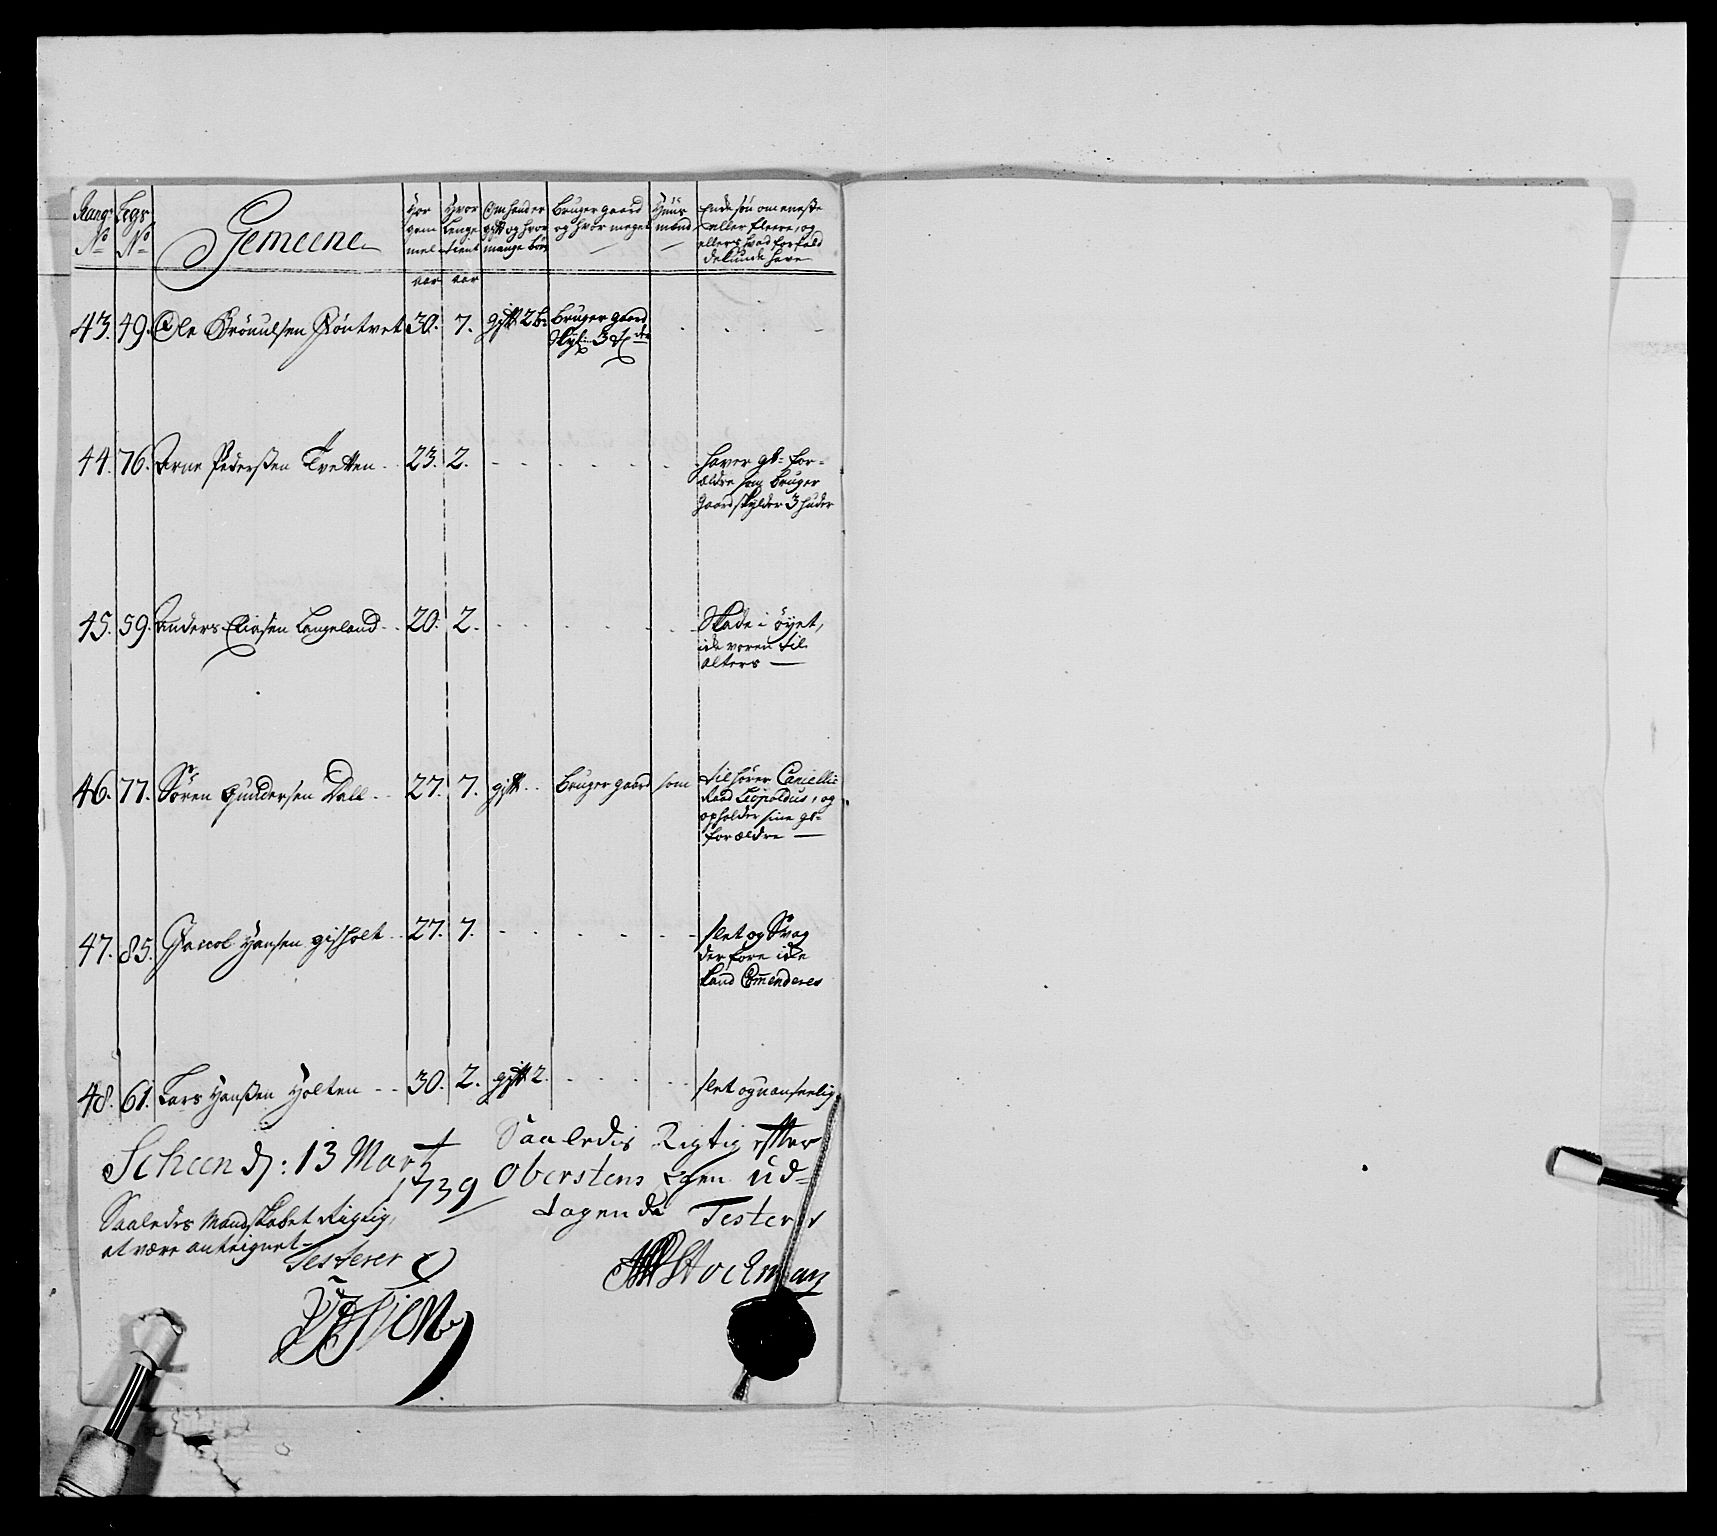 Rang No | Legs No | Gemeene | Hvor gam mel | Hvor Lenge tient | Om hand er gift og hvor mange børn | Bruger gaard og hvor meget | Huus mænd | Er de søn om eneste eller fleere, og ellers hvad forfald de kunde have
aar | aar
43. | 49. | Ole Brönulsen Röntvet | 30. | 7. | gift 2 b: | Bruger gaard
Skyl: 3
44. | 76. | Arne Pederßen Tvetten | 23. | 2. | haver gl: for=
ældre som bruger
Gaard skylder 3 huder
45. | 59. | Anders Eliesen Langeland | 20. | 2. | Skade i öyet,
icke voren til
alters
46. | 77. | Sören Gundersen Dall | 27. | 7. | gift | Bruger gaard | som | tilhörer Cancellie
Raad Leopoldus, og
opholder sine gl:
forældre
47. | 85. | Jacob Hansen gisholt | 27. | 7. | slet og Svag
derfore icke
kand Commenderes
48. | 61. | Lars Hanßen Holten | 30. | 2. | gift 2. | slet og uanseelig
Scheen d: 13 Marty
1739
Saaledes Mandskabet Rigtig,
at være anteignet
Testerer
Saaledis Rigtig efter
Oberstens Egen ud=
tagende Testerer
Stockman